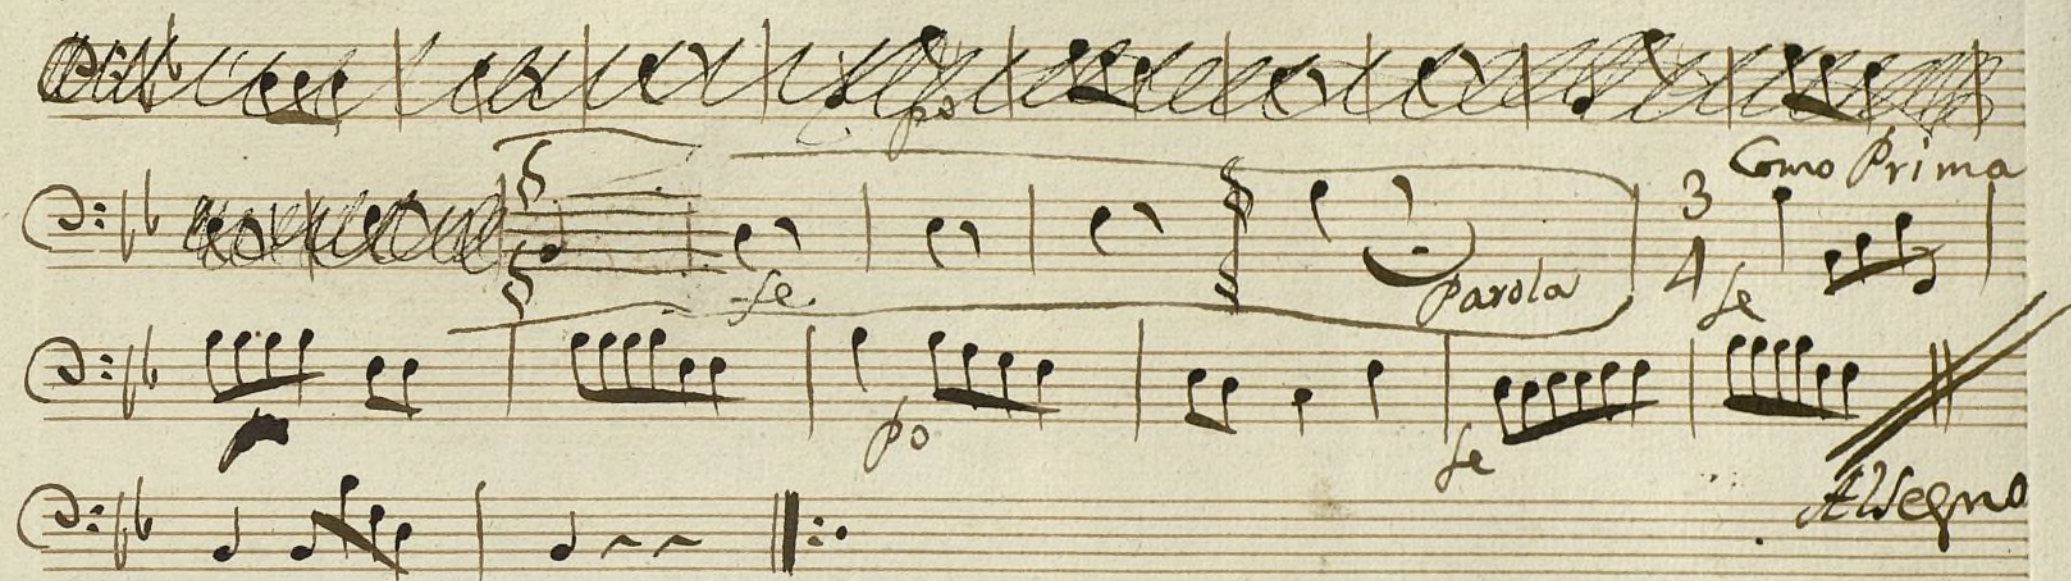 po
Como Prima
fe.
Parola
3
4
fe
po
fe
Al Segno